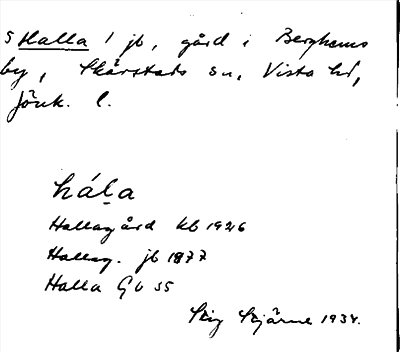 s Halla 1 jb, gård i Berghems
by, Skärstads sn, Vista hd,
Jönk. l.
hál̲a
Hallagård kb 1926
Hallag. jb 1877
Halla GV 55
Stig Stjärne 1934.